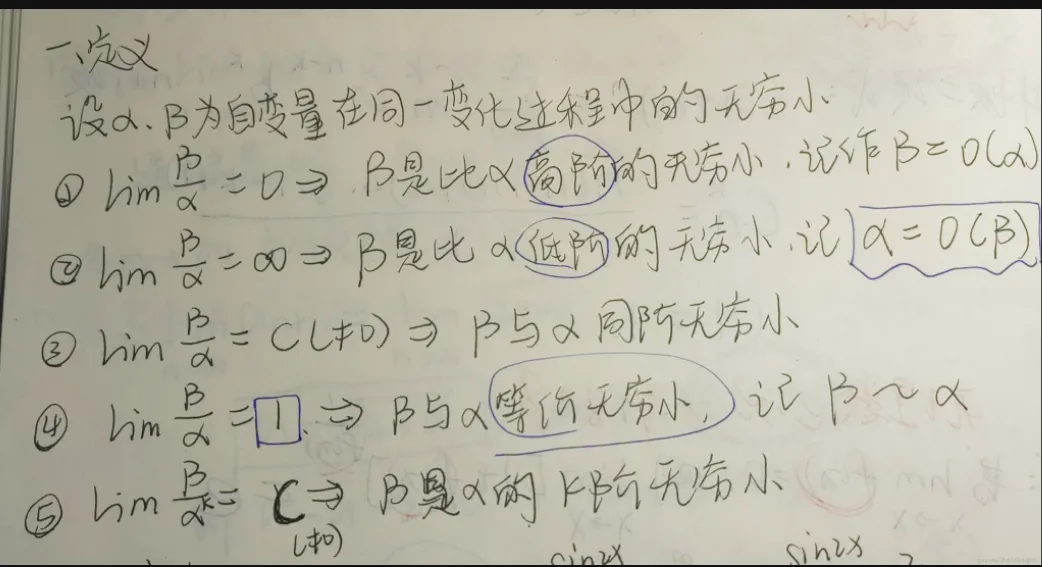 一、定义
设α、β为自变量在同一变化过程中的无穷小
① lim β/α = 0 ⇒ β是比α高阶的无穷小.记作β=0(α)
② lim β/α = ∞ ⇒ β是比α低阶的无穷小.记 α=0(β)
③ lim β/α = C(≠0) ⇒ β与α同阶无穷小
④ lim β/α = 1 ⇒ β与α等价无穷小, 记 β~α
⑤ lim β/α^k = C(≠0) ⇒ β是α的k阶无穷小
sin2x sin2x